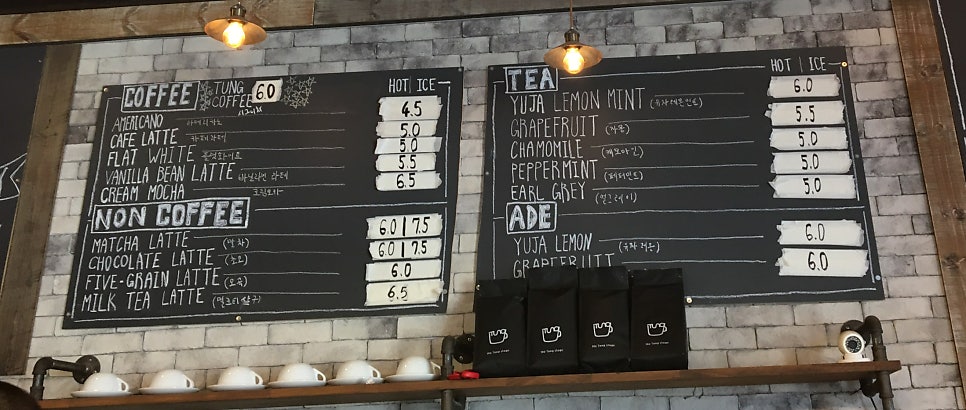 COFFEE TUNG COFFEE 6.0 HOT | ICE
AMERICANO 아메리카노 4.5
CAFE LATTE 카페라떼 5.0
FLAT WHITE 플랫화이트 5.0
VANILLA BEAN LATTE 바닐라빈 라떼 5.5
CREAM MOCHA 크림모카 6.5
NON COFFEE
MATCHA LATTE (말차) 6.0 | 7.5
CHOCOLATE LATTE (초코) 6.0 | 7.5
FIVE-GRAIN LATTE (오곡) 6.0
MILK TEA LATTE 6.5
TEA HOT | ICE
YUJA LEMON MINT (유자레몬민트) 6.0
GRAPEFRUIT (자몽) 5.5
CHAMOMILE (캐모마일) 5.0
PEPPERMINT (페퍼민트) 5.0
EARL GREY (얼그레이) 5.0
ADE
YUJA LEMON (유자레몬) 6.0
GRAPEFRUIT 6.0